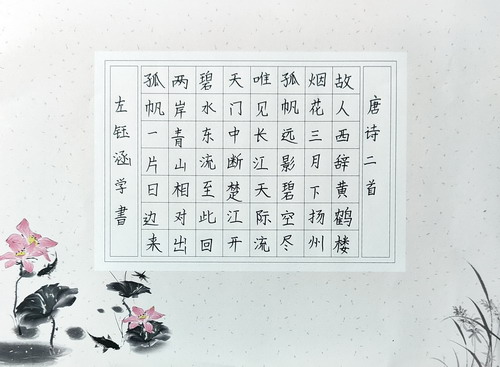 唐诗二首
故人西辞黄鹤楼
烟花三月下扬州
孤帆远影碧空尽
唯见长江天际流
天门中断楚江开
碧水东流至此回
两岸青山相对出
孤帆一片日边来
左钰涵学書